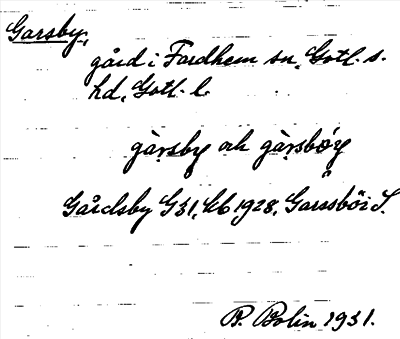 Garsby,
gård i Fardhem sn, Gotl. s.
hd, Gotl. l.
gàrsby och gàrsbǫy
Gårdsby G31, kb 1928, Garssböi S.
B. Bolin 1931.